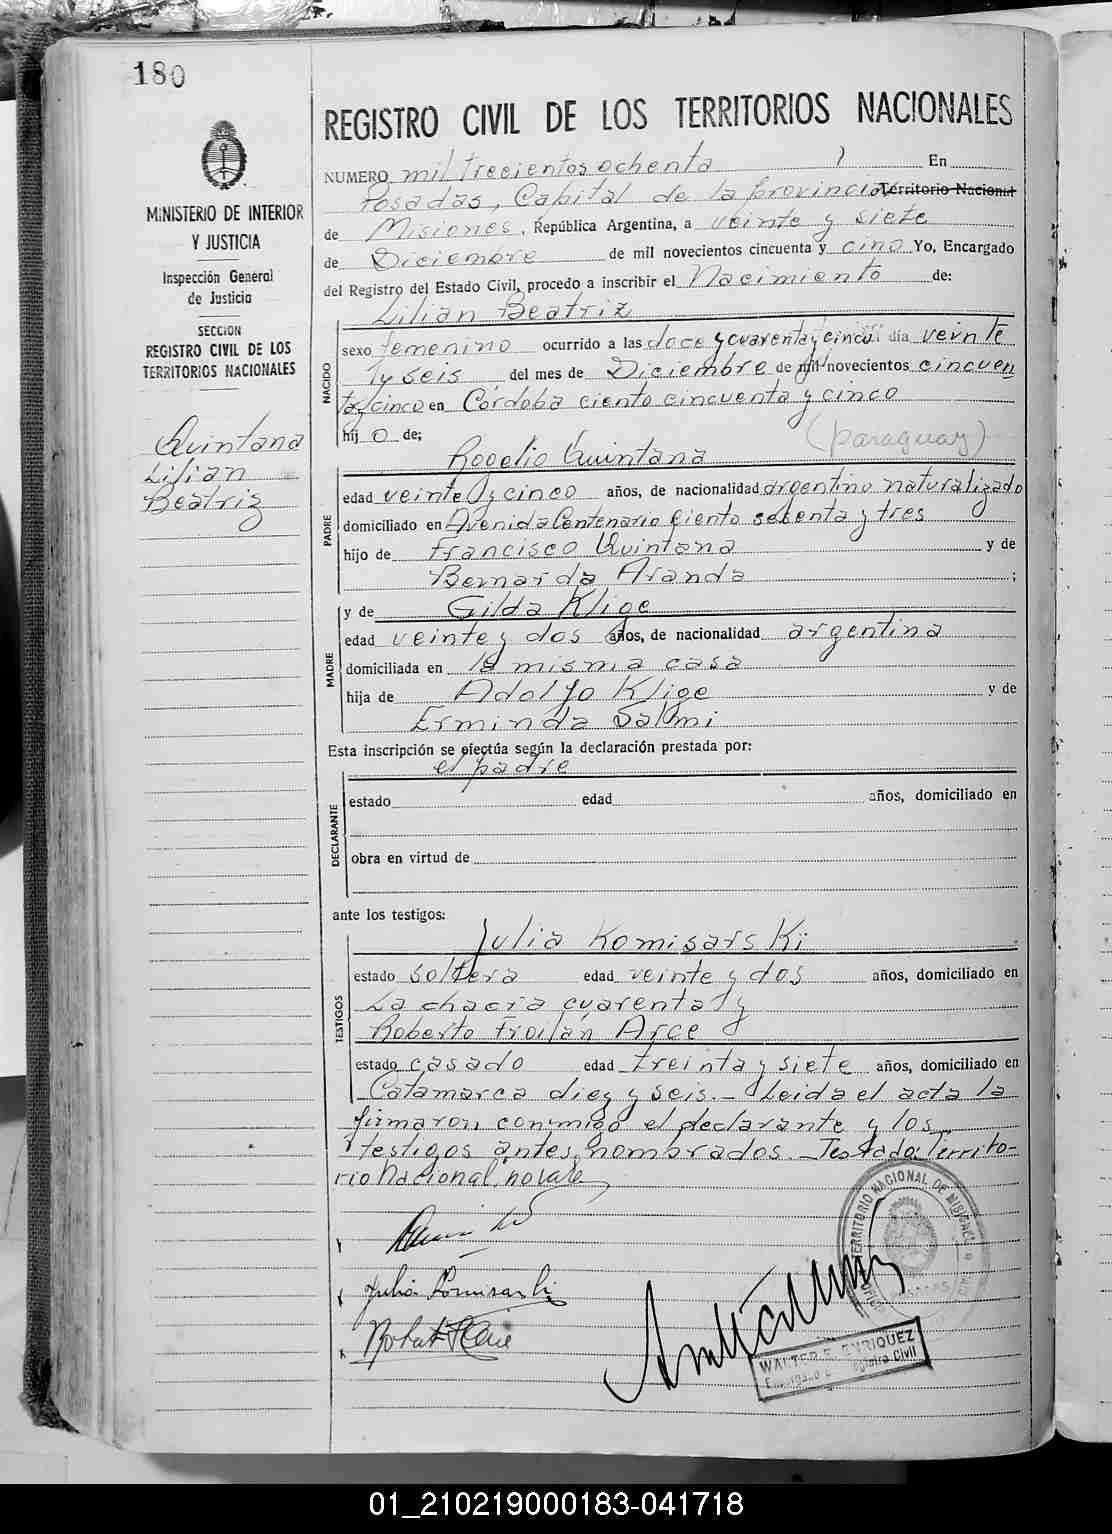 180
MINISTERIO DE INTERIOR
Y JUSTICIA
Inspección General
de Justicia
SECCION
REGISTRO CIVIL DE LOS
TERRITORIOS NACIONALES
Quintana
Lilian
Beatriz
REGISTRO CIVIL DE LOS TERRITORIOS NACIONALES
NUMERO mil trecientos ochenta En
Posadas, Capital de la provincia Territorio Nacional
de Misiones, República Argentina, a veinte y siete
de Diciembre de mil novecientos cincuenta y cinco Yo, Encargado
del Registro del Estado Civil, procedo a inscribir el Nacimiento de:
Lilian Beatriz
NACIDO
sexo femenino ocurrido a las doce y cuarenta y cinco día veinte
y seis del mes de Diciembre de mil novecientos cincuen
ta y cinco en Córdoba ciento cincuenta y cinco
hij o de;
Rogelio Quintana (paraguay)
PADRE
edad veinte y cinco años, de nacionalidad argentino naturalizado
domiciliado en Avenida Centenario ciento setenta y tres
hijo de Francisco Quintana y de
Bernarda Aranda ;
y de Gilda Klige
MADRE
edad veinte y dos años, de nacionalidad argentina
domiciliada en la misma casa
hija de Adolfo Klige y de
Erminda Salmi
Esta inscripción se efectúa según la declaración prestada por:
el padre
DECLARANTE
estado edad años, domiciliado en
obra en virtud de
ante los testigos:
Julia Komisarski
TESTIGOS
estado soltera edad veinte y dos años, domiciliado en
La chacra cuarenta y
Roberto Froilán Arce
estado casado edad treinta y siete años, domiciliado en
Catamarca diez y seis.- Leida el acta la
firmaron conmigo el declarante y los
testigos antes nombrados.- Testado: Territo-
rio Nacional, no vale
Julia Komisarski
TERRITORIO NACIONAL DE MISIONES
WALTER E. ENRIQUEZ
Encargado Registro Civil
01_210219000183-041718